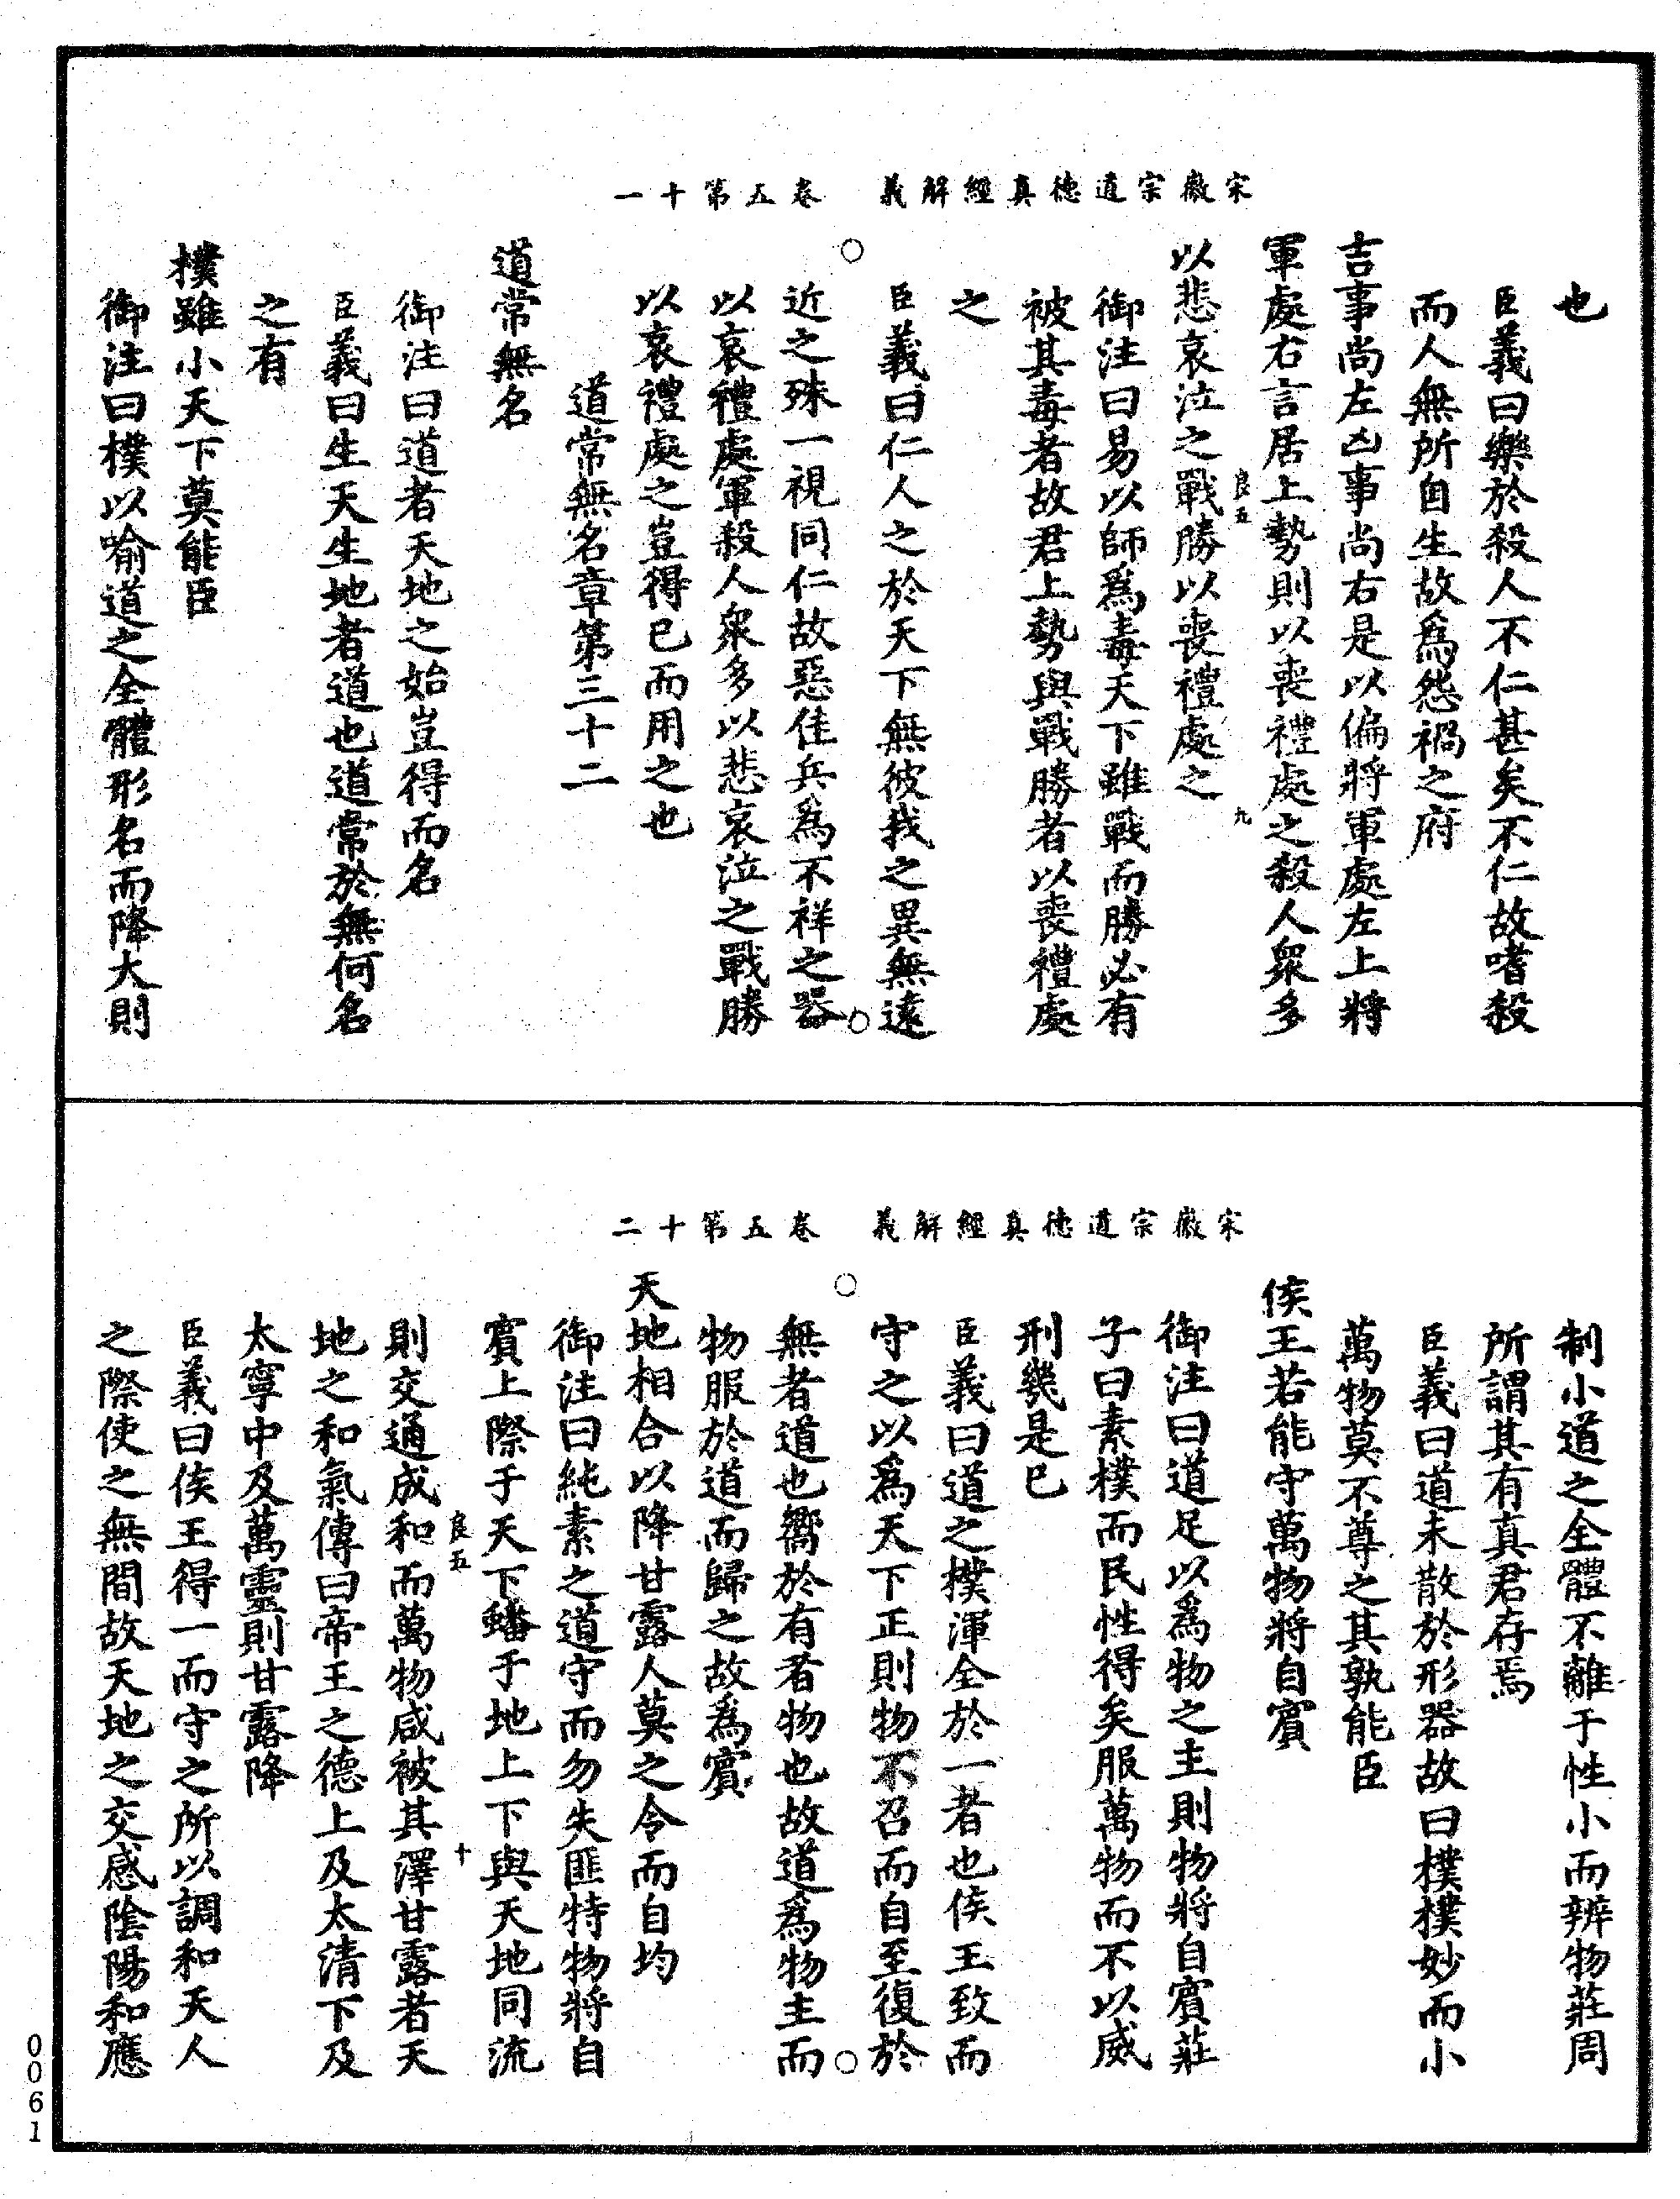 宋徽宗道德真經解義　卷五第十一
也
臣義曰樂於殺人不仁甚矣不仁故嗜殺
而人無所自生故爲怨禍之府
吉事尚左凶事尚右是以偏將軍處左上將
軍處右言居上勢則以喪禮處之殺人衆多
良五　九
以悲哀泣之戰勝以喪禮處之
御注曰易以師爲毒天下雖戰而勝必有
被其毒者故君上勢與戰勝者以喪禮處
之
臣義曰仁人之於天下無彼我之異無遠
近之殊一視同仁故惡佳兵爲不祥之器
以哀禮處軍殺人衆多以悲哀泣之戰勝
以哀禮處之豈得已而用之也
道常無名章第三十二
道常無名
御注曰道者天地之始豈得而名
臣義曰生天生地者道也道常於無何名
之有
樸雖小天下莫能臣
御注曰樸以喻道之全體形名而降大則
宋徽宗道德真經解義　卷五第十二
制小道之全體不離于性小而辨物莊周
所謂其有真君存焉
臣義曰道未散於形器故曰樸樸妙而小
萬物莫不尊之其孰能臣
侯王若能守萬物將自賓
御注曰道足以爲物之主則物將自賓莊
子曰素樸而民性得矣服萬物而不以威
刑幾是已
臣義曰道之樸渾全於一者也侯王致而
守之以爲天下正則物不召而自至復於
無者道也嚮於有者物也故道爲物主而
物服於道而歸之故爲賓
天地相合以降甘露人莫之令而自均
御注曰純素之道守而勿失匪特物將自
賓上際于天下蟠于地上下與天地同流
則交通成和而萬物咸被其澤甘露者天
良五　十
地之和氣傳曰帝王之德上及太清下及
太寧中及萬靈則甘露降
臣義曰侯王得一而守之所以調和天人
之際使之無間故天地之交感陰陽和應
0061